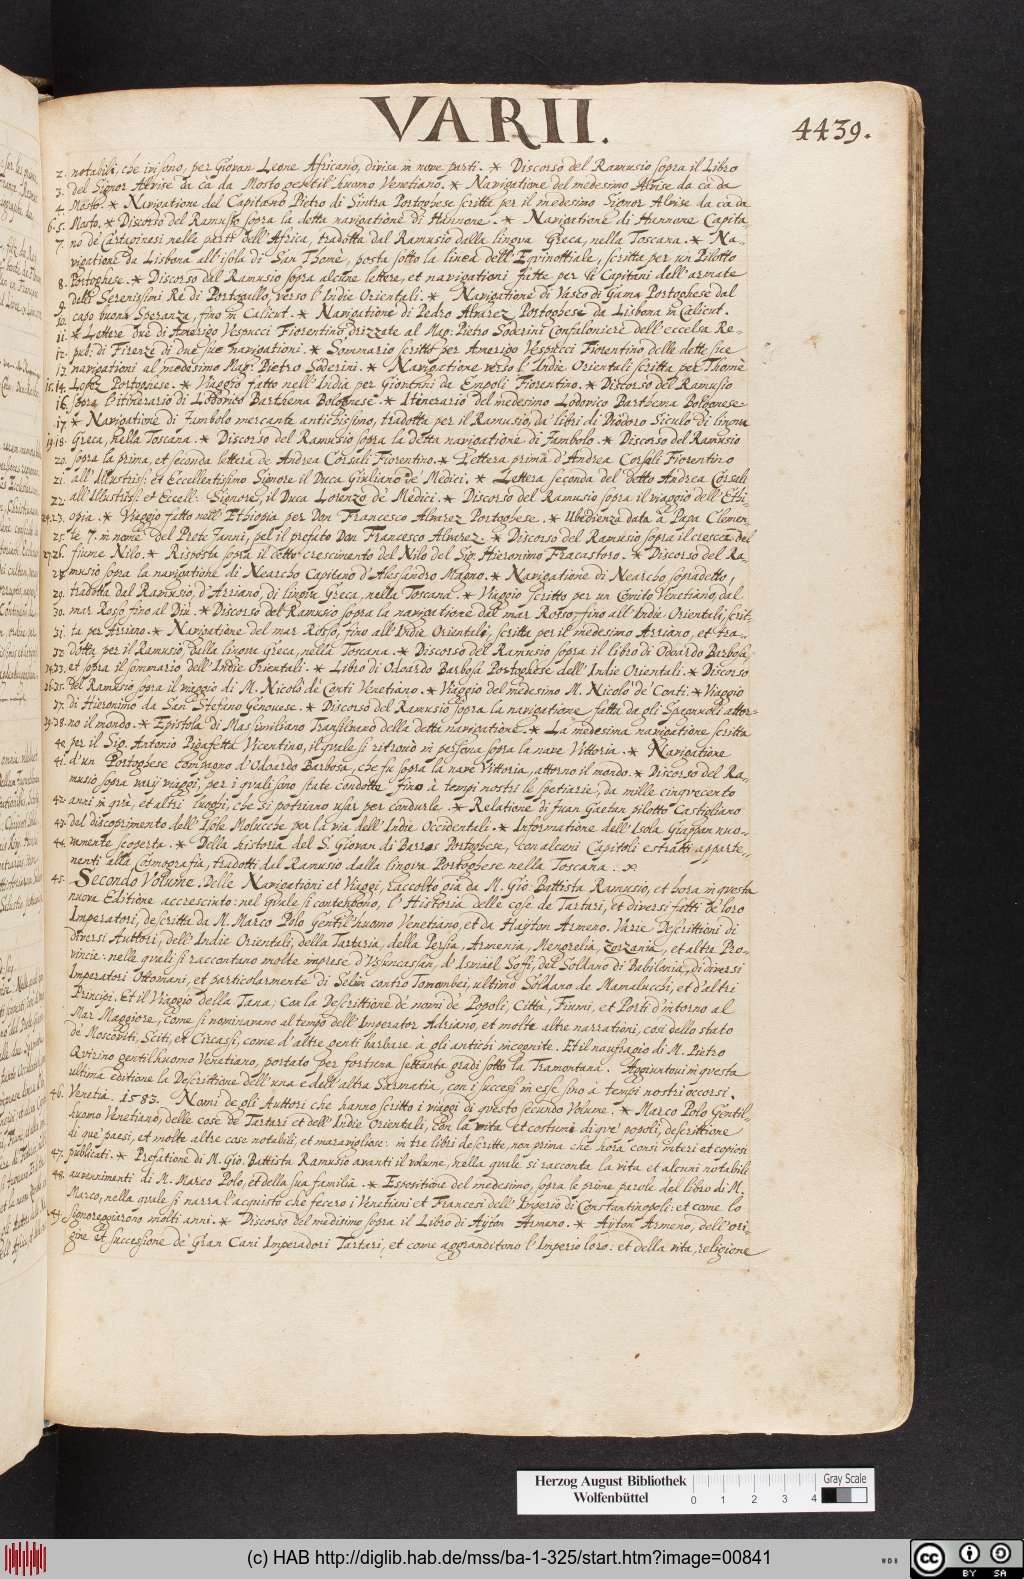 VARII.
4439.
2. notabili, che in sono, per Giovan Leone Africano, divisa in nove parti. * Discorso del Ramusio sopra il Libro
3. del Signor Alvise da ca da Mosto gentil'huomo Venetiano. * Navigatione del medesimo Alvise da ca da
4. Mosto. * Navigatione del Capitano Pietro di Sintra Portoghese scritta per il medesimo Signor Alvise da ca da
6. 5. Mosto. * Discorso del Ramusio sopra la detta navigatione di Hannone. * Navigatione di Hannone Capita-
7. no de' Cartaginesi nelle parti dell'Africa, tradotta dal Ramusio dalla lingua Greca, nella Toscana. * Na-
vigatione da Lisbona all'isola di San Thomè, posta sotto la linea dell'Equinottiale, scritta per un Pilotto
8. Portoghese. * Discorso del Ramusio sopra alcune lettere, et navigationi fatte per li Capitani dell'armate
9. delli Serenissimi Re di Portogallo, verso l'Indie Orientali. * Navigatione di Vasco di Gama Portoghese dal
10. capo buona Speranza, fino in Calicut. * Navigatione di Pedro Alvarez Portoghese da Lisbona in Calicut.
11. * Lettere due di Amerigo Vespucci Fiorentino drizzate al Mag: Pietro Soderini Confaloniere dell'eccelsa Re-
12. pub: di Firenze di due sue navigationi. * Sommario scritto per Amerigo Vespucci Fiorentino delle dette sue
13. navigationi al medesimo Mag: Pietro Soderini. * Navigatione verso l'Indie Orientali scritta per Thomè
15. 14. Lopez Portoghese. * Viaggio fatto nell'India per Giovanni da Empoli Fiorentino. * Discorso del Ramusio
16. sopra l'itinerario di Lodovico Barthema Bolognese. * Itinerario del medesimo Lodovico Barthema Bolognese
17. * Navigatione di Jambolo mercante antichissimo, tradotta per il Ramusio, da' libri di Diodoro Siculo di lingua
19. 18. Greca, nella Toscana. * Discorso del Ramusio sopra la detta navigatione di Jambolo. * Discorso del Ramusio
20. sopra la prima, et seconda lettera de Andrea Corsali Fiorentino. * Lettera prima d'Andrea Corsali Fiorentino
21. all'Illustriss: et Eccellentissimo Signore il Duca Giuliano de' Medici. * Lettera seconda del detto Andrea Corsali
22. all'Illustriss: et Eccell: Signore, il Duca Lorenzo de' Medici. * Discorso del Ramusio sopra il viaggio dell'Ethi-
24. 23. opia. * Viaggio fatto nell'Ethiopia per Don Francesco Alvarez Portoghese. * Ubedienza data a Papa Clemen,
25. te 7. in nome del Prete Janni, pel il prefato Don Francesco Alvarez. * Discorso del Ramusio sopra il crescer del
27. 26. fiume Nilo. * Risposta sopra il detto crescimento del Nilo del Sig: Hieronimo Fracastoro. * Discorso del Ra-
28. musio sopra la navigatione di Nearcho Capitano d'Alessandro Magno. * Navigatione di Nearcho sopradetto,
29. tradotta dal Ramusio, d'Arriano, di lingua Greca, nella Toscana. * Viaggio scritto per un Comito Venetiano, dal
30. mar Rosso fino al Diu. * Discorso del Ramusio sopra la navigatione dal mar Rosso, fino all'Indie Orientali, scrit-
31. ta per Arriano. * Navigatione del mar Rosso, fino all'Indie Orientali, scritta per il medesimo Arriano, et tra-
32. dotta per il Ramusio, dalla lingua Greca, nella Toscana. * Discorso del Ramusio sopra il libro di Odoardo Barbosa,
34. 33. et sopra il sommario dell'Indie Orientali. * Libro di Odoardo Barbosa Portoghese dell'Indie Orientali. * Discorso
36. 35. del Ramusio sopra il viaggio di M. Nicolò de' Conti Venetiano. * Viaggio del medesimo M. Nicolo de' Conti. * Viaggio
37. di Hieronimo da San Stefano Genovese. * Discorso del Ramusio sopra la navigatione fatta da gli Spagnuoli attor-
39. 38. no il mondo. * Epistola di Massimiliano Transilvano della detta navigatione. * La medesima navigatione scritta
40. per il Sig. Antonio Pigafetta Vicentino, il quale si ritrovò in persona sopra la nave Vittoria. * Navigatione
41. d'un Portoghese compagno d'Odoardo Barbosa, che fu sopra la nave Vittoria, attorno il mondo. * Discorso del Ra-
musio sopra varij viaggi, per i quali sono state condotte fino a tempi nostri le spetiarie, da mille cinquecento
42. anni in quà, et altri luoghi, che si potriano usar per condurle. * Relatione di Juan Gaetan pilotto Castigliano
43. del discoprimento dell'Isole Molucche per la via dell'Indie Occidentali. * Informatione dell'Isola Giappan nuo-
44. vamente scoperta. * Della historia del S. Giovan di Barros Portoghese, con alcuni Capitoli estratti apparte-
nenti alla Cosmografia, tradotti dal Ramusio dalla lingua Portoghese nella Toscana. *
45. Secondo Volume. Delle Navigationi et Viaggi, raccolto già da M. Gio: Battista Ramusio, et hora in questa
nuova Editione accresciuto: nel quale si contengono, l'Historia delle cose de Tartari, et diversi fatti de' loro
Imperatori, descritta da M. Marco Polo Gentil'huomo Venetiano, et da Hayton Armeno. Varie Descrittioni di
diversi Auttori, dell'Indie Orientali, della Tartaria, della Persia, Armenia, Mengrelia, Zorzania, et altre Pro-
vincie: nelle quali si raccontano molte imprese d'Usuncassan, d'Ismael Sofi, del Soldano di Babilonia, di diversi
Imperatori Ottomani, et particolarmente di Selim contro Tomombei, ultimo Soldano de Mamalucchi, et d'altri
Principi. Et il Viaggio della Tana; Con la Descrittione de' nomi de' Popoli, Città, Fiumi, et Porti d'intorno al
Mar Maggiore, come si nominavano al tempo dell'Imperator Adriano, et molte altre narrationi, così dello stato
de' Moscoviti, Sciti, et Circassi, come d'altre genti barbare à gli antichi incognite. Et il naufragio di M. Pietro
Quirino gentilhuomo Venetiano, portato per fortuna settanta gradi sotto la Tramontana. Aggiuntovi in questa
ultima editione la Descrittione dell'una e dell'altra Sarmatia, con i successi in esse fino à tempi nostri occorsi.
46. Venetia. 1583. Nomi de gli Auttori che hanno scritto i viaggi di questo secondo Volume. * Marco Polo Gentil-
huomo Venetiano, delle cose de' Tartari et dell'Indie Orientali, con la vita et costumi di que' popoli, descrittione
di que' paesi, et molte altre cose notabili, et maravigliose: in tre libri descritte, non prima che hora cosi interi et copiosi
47. publicati. * Prefatione di M. Gio: Battista Ramusio avanti il volume, nella quale si racconta la vita et alcuni notabili
48. avvenimenti di M. Marco Polo, et della sua familia. * Espositione del medesimo, sopra le prime parole del libro di M.
Marco, nella quale si narra l'acquisto che fecero i Venetiani et Francesi dell'Imperio di Constantinopoli: et come lo
49. signoreggiarono molti anni. * Discorso del medesimo sopra il Libro di Ayton Armeno. * Ayton Armeno, dell'ori-
gine et successione de' Gran Cani Imperadori Tartari, et come aggranditono l'Imperio loro: et della vita, religione
Herzog August Bibliothek
Wolfenbüttel
0 1 2 3 4
Gray Scale
(c) HAB http://diglib.hab.de/mss/ba-1-325/start.htm?image=00841
WDB
cc BY SA